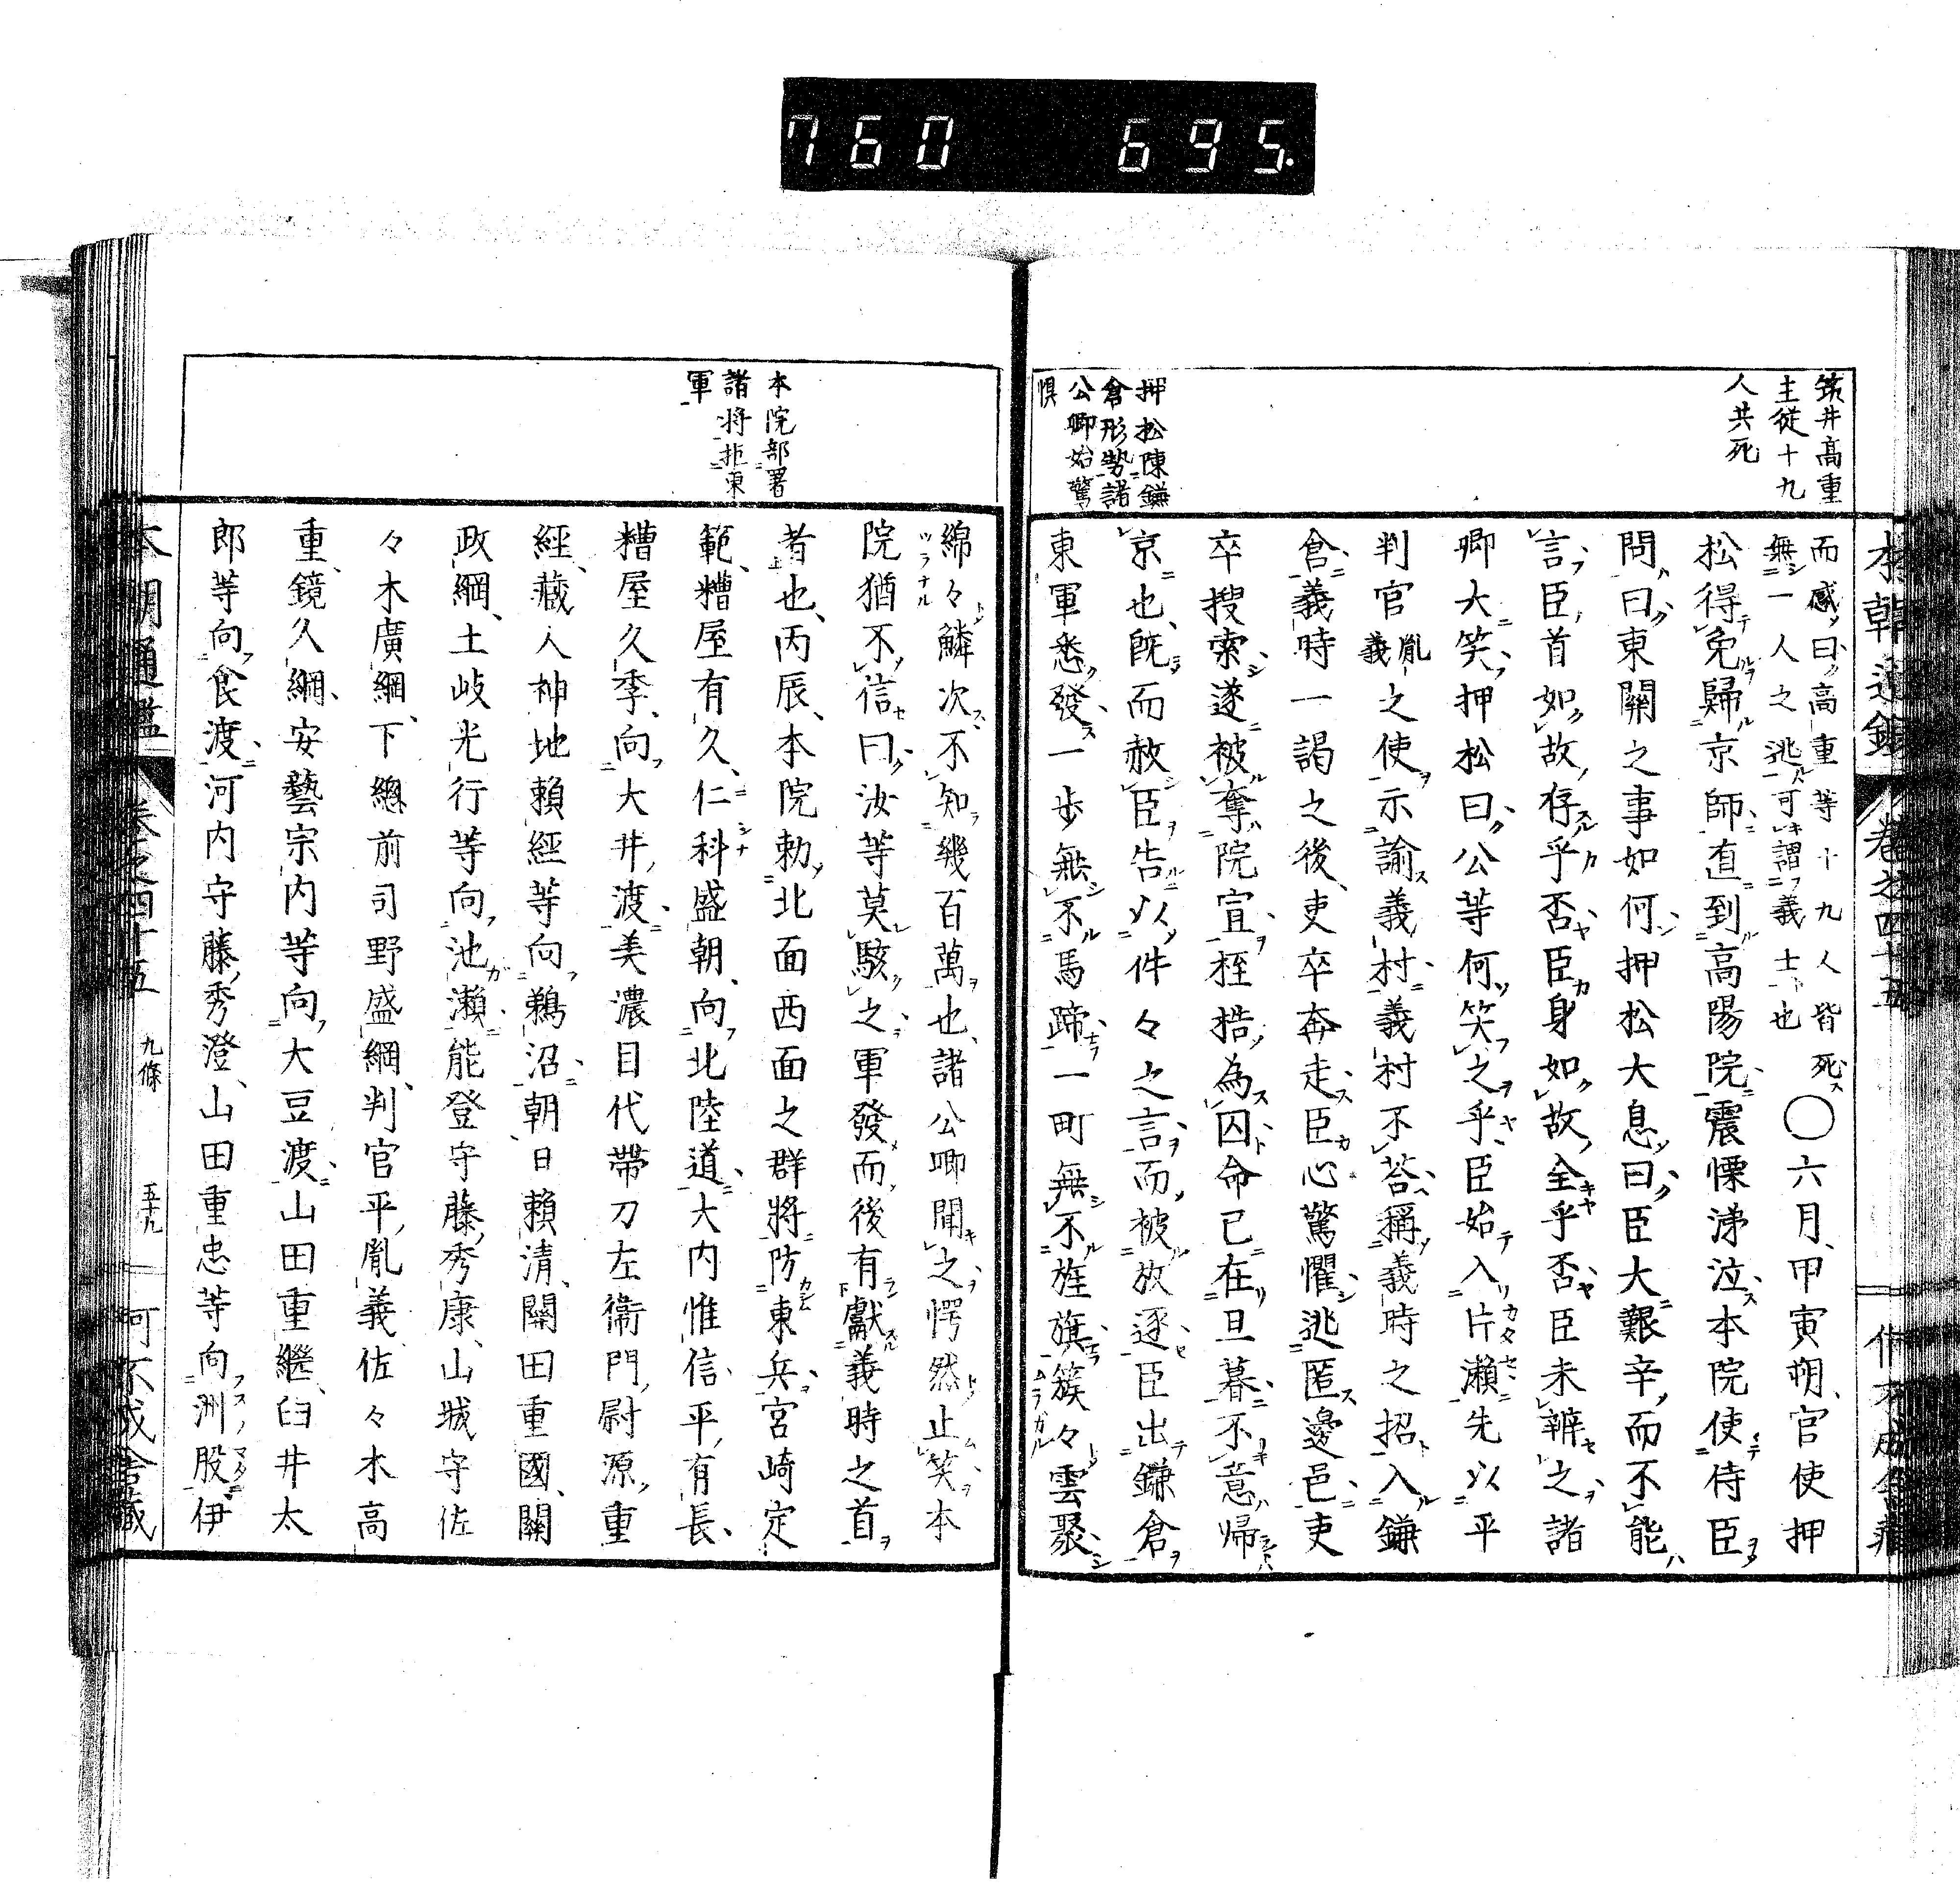 760 695.
筑井高重
主従十九
人共死
押松陳鎌
倉形勢諸
公卿始驚
惧
而感曰高重等十九人皆死
無一人之逃可謂義士也
○六月甲寅朔官使押
松得免歸京師直到高陽院震慄涕泣本院使侍臣
問曰東關之事如何押松大息曰臣大艱辛而不能
言臣首如故存乎否臣身如故全乎否臣未辨之諸
卿大笑押松曰公等何笑之乎臣始入片瀬先以平
判官胤義之使示諭義村義村不荅稱義時之招入鎌
倉義時一謁之後吏卒奔走臣心驚懼逃匿邊邑吏
卒搜索遂被奪院宣桎梏為囚命已在旦暮不意帰
京也既而赦臣告以件々之言而被放逐臣出鎌倉
東軍悉發一歩無不馬蹄一町無不旌旗簇々雲聚
本院部署
諸將拒東
軍
綿々鱗次不知幾百萬也諸公卿聞之愕然止笑本
院猶不信曰汝等莫駭之軍發而後有獻義時之首
者也丙辰本院勅北面西面之群將防東兵宮崎定
範糟屋有久仁科盛朝向北陸道大内惟信平有長
糟屋久季向大井渡美濃目代帶刀左衞門尉源重
經藏人神地賴經等向鵜沼朝日賴清關田重國關
政綱土岐光行等向池瀬能登守藤秀康山城守佐
々木廣綱下總前司野盛綱判官平胤義佐々木高
重鏡久綱安藝宗内等向大豆渡山田重繼臼井太
郎等向食渡河内守藤秀澄山田重忠等向洲股伊
本朝通鑑 卷之四十五 九條 五十九 可不成舎藏